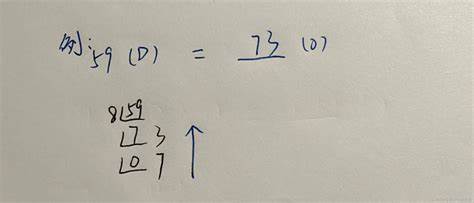 例: 59 (D) = 73 (O)
8 59
7 3
0 7